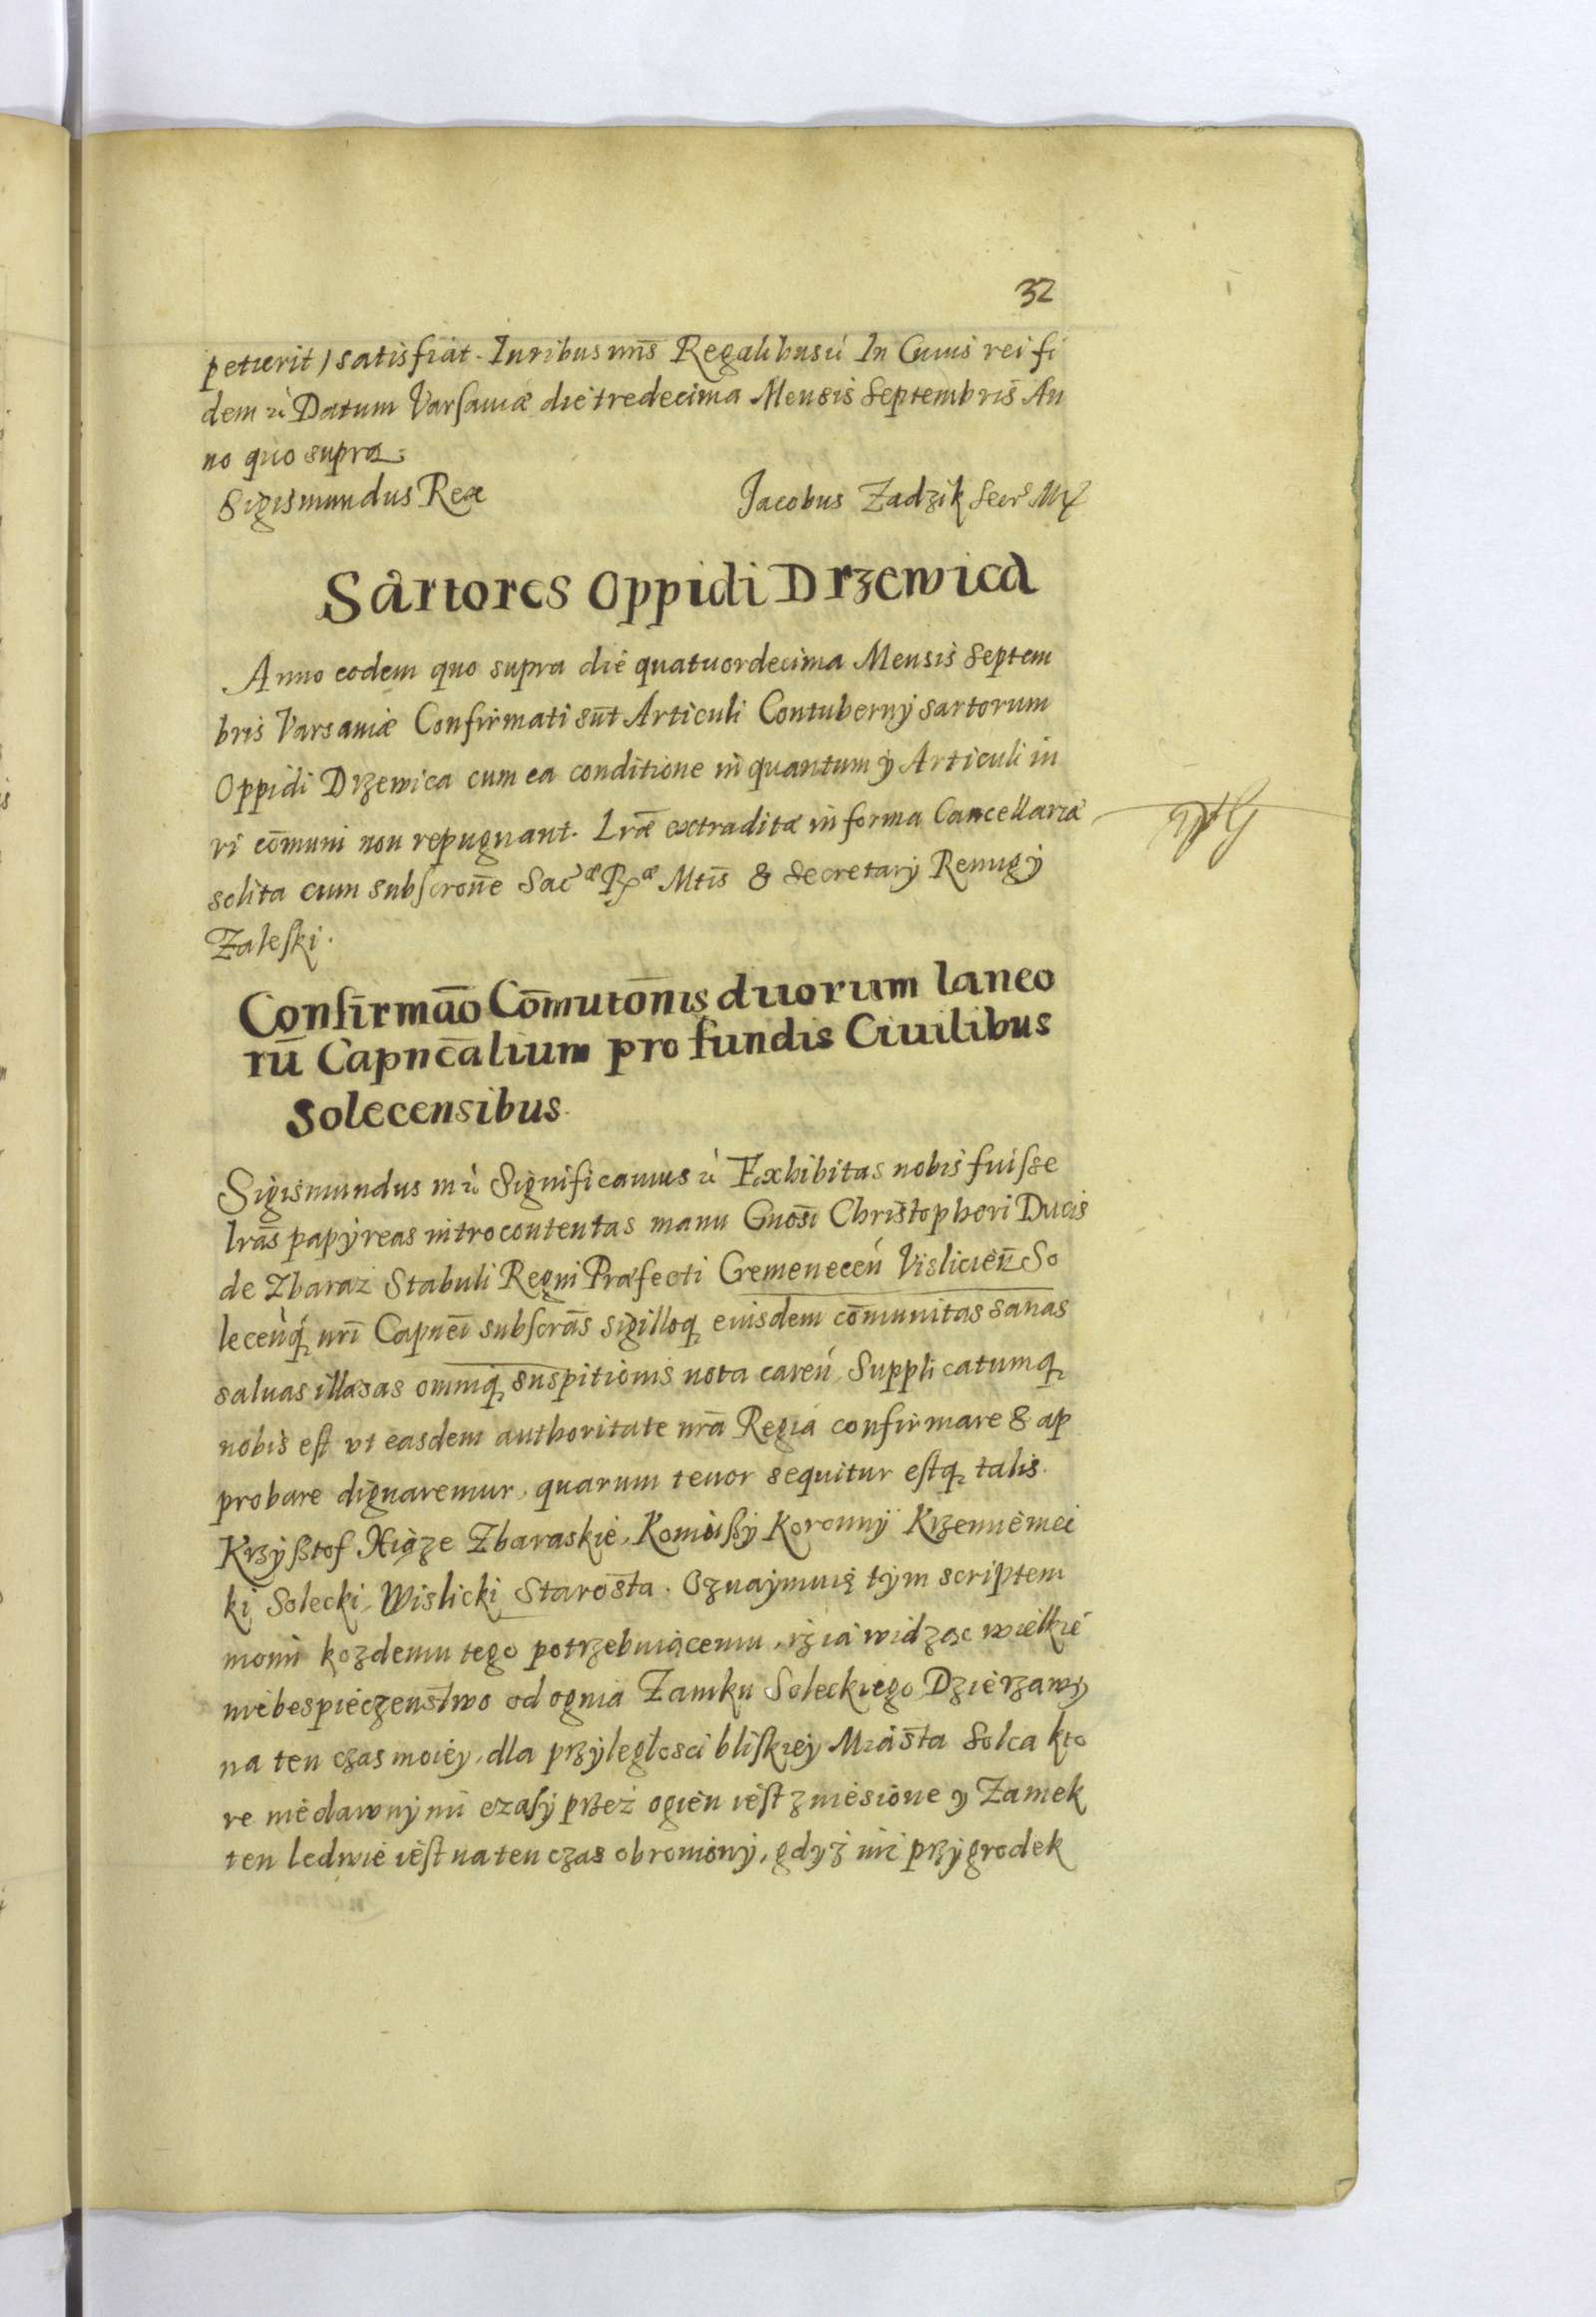 32
petierit) satisfiat. Iuribus nr̄is Regalibus ѵ̀ In Cuius rei fi
dem ѵ̀ Datum Varsauiæ die tredecima Mensis Septembris An
no quo supra.
Sigismundus Rex Jacobus Zadzik Secrs Mr
Sartores Oppidi Drzewica
Anno eodem quo supra die quatuordecima Mensis Septem
bris Varsauiæ Confirmati sūt Articuli Contubernÿ sartorum
Oppidi Drzewica cum ea conditione in quantum ÿ Articuli iu
ri cōmuni non repugnant. Lr̄æ extraditæ in forma Cancellariæ
solita cum subscron̄e Sacæ Ræ Mtis̄ & Secretarÿ Remigÿ
Zaleski.
Confirmāo Cōmutōnis duorum laneo
rū Capnēalium pro fundis Ciuilibus
Solecensibus.
Sigismundus m ѵ̀ Significamus ѵ̀ Exhibitas nobis fuisse
lrās papÿreas introcontentas manu Gnosī Christophori Ducis
de Zbaraz Stabuli Regni Præfecti Cremeneceń Vislicień So
leceńq. nrī Capneī subscrās sigilloq. eiusdem cōmunitas sanas
saluas illæsas omniq. suspitionis nota careń, Supplicatumq.
nobis est vt easdem authoritate nrā Regia confirmare & ap
probare dignaremur, quarum tenor sequitur estq. talis.
Krzÿsztof Xiąze Zbaraskie, Koniuszÿ Koronnÿ Krzemiemiec
ki Solecki, Wislicki Starosta. Oznaÿmuię tÿm scriptem
moim kozdemu tego potrzebuiącemu, iz ia widząc wielkie
niebespieczenstwo od ognia Zamku Soleckiego Dzierzawÿ
na ten czas moieÿ, dla przÿległosci bliskieÿ Miasta Solca kto
re niedawnÿmi czasÿ przez ogien iest zniesione ÿ Zamek
ten ledwie iest na ten czas obronionÿ, gdÿz mi przÿgrodek